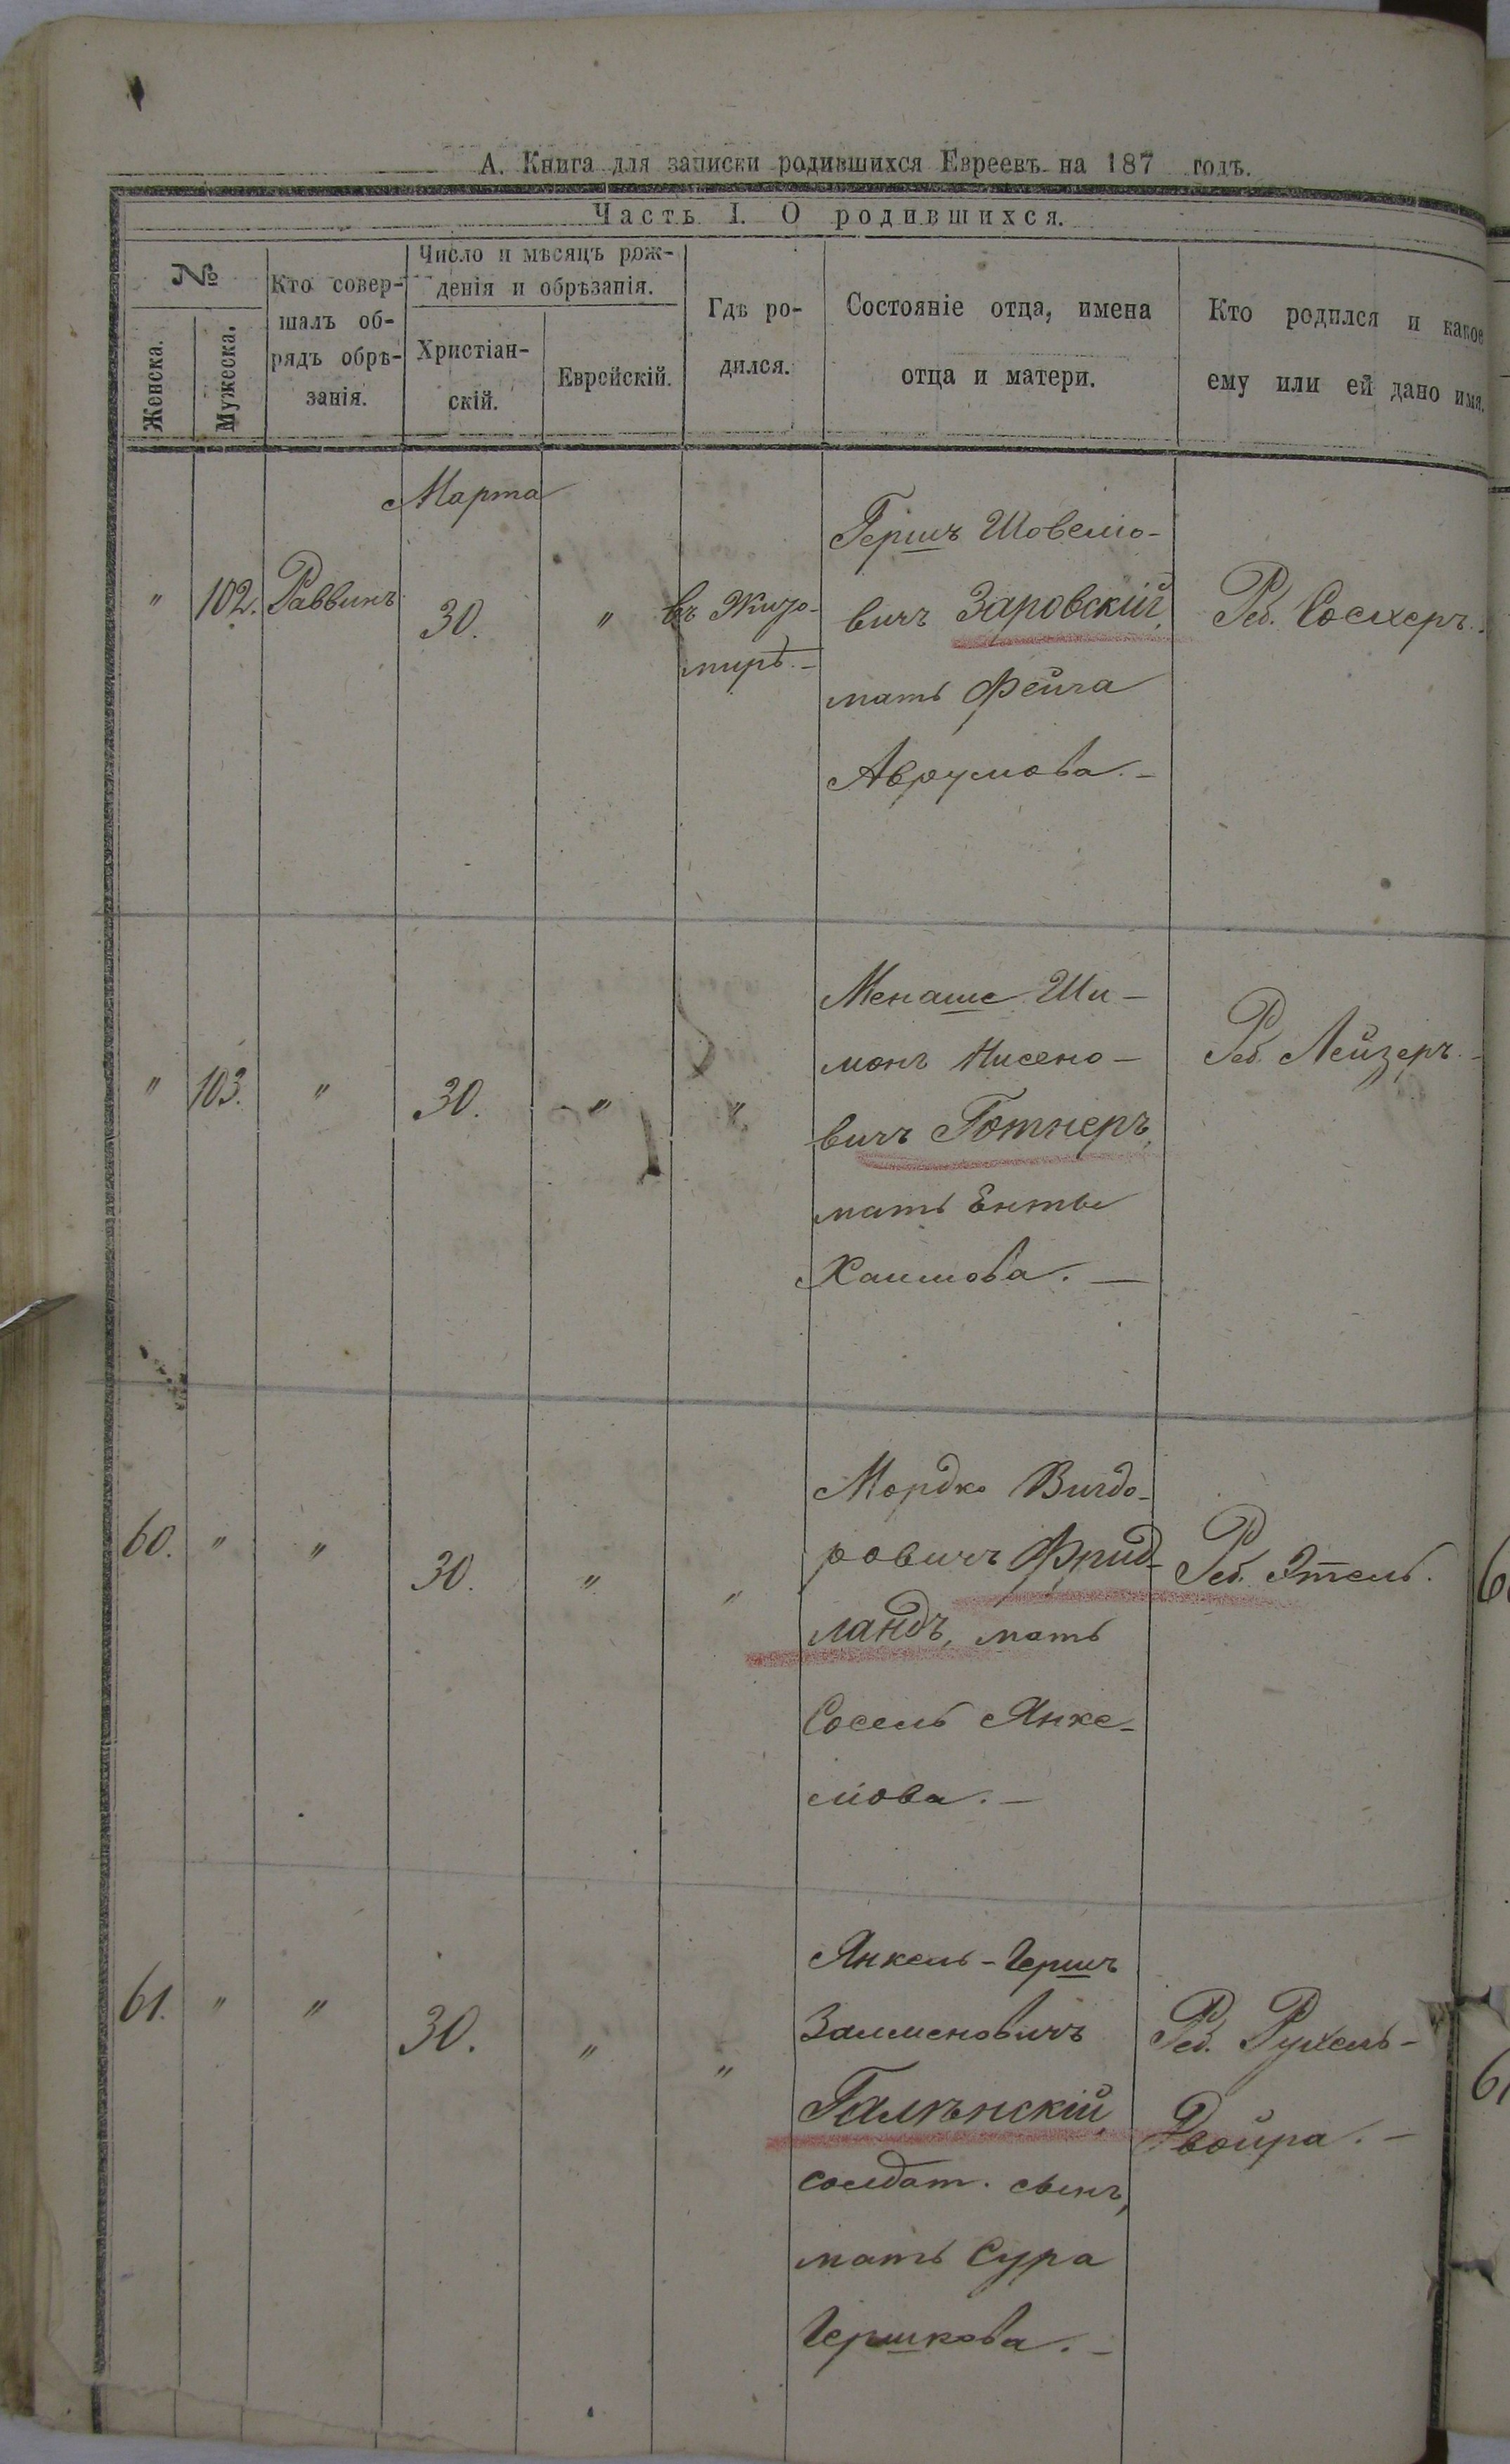 А. Книга для записки родившихся Евреевъ на 187 годъ.
Часть I. О родившихся.
№
Женска.
Мужеска.
Кто совер-
шалъ об-
рядъ обрѣ-
занія.
Число и мѣсяцъ рож-
денія и обрѣзанія.
Христіан-
скій.
Еврейскій.
Гдѣ ро-
дился.
Состояніе отца, имена
отца и матери.
Кто родился и какое
ему или ей дано имя.
Марта
" 102. Раввинъ 30. " въ Жито-
мирѣ. -
Гершъ Шовелио-
вичъ Заровскій,
мать Фейга
Аврумова. -
Реб. Сосхеръ.
" 103. " 30. " "
Менаше Ши-
монъ Нисено-
вичъ Готнеръ,
мать Енты
Хаимова. -
Реб. Лейзеръ. -
60. " " 30. " "
Мордко Вигдо-
ровичъ Фрид-
ландъ, мать
Сосель Янке-
лiова. -
Реб. Этель.
61. " " 30. " "
Янкель-Гершъ
Залменовичъ
Галѣнскій,
солдат. сынъ,
мать Сура
Гершкова. -
Реб. Рухель-
Двойра. -